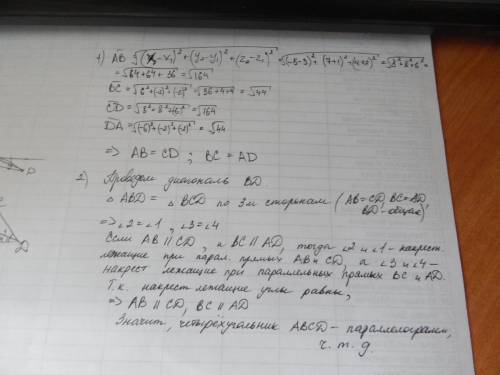 1) AB √(x₂-x₁)² + (y₂-y₁)² + (z₂-z₁)² = √(-5-3)² + (7+1)² + (4+2)² = √8² + 8² + 6² =
= √64+64+36 = √164
BC = √6²+(-2)²+(-2)² = √36+4+4 = √44
CD = √8²+8²+(6)² = √164
DA = √(-6)²+(-2)²+(-2)² = √44
=> AB = CD ; BC = AD
2) Проведем диагональ BD.
△ ABD = △ BCD по 3м сторонам (AB=CD, BC=AD
BD-общая),
=> ∠2=∠1 , ∠3=∠4
Если AB || CD, и BC || AD, тогда ∠2 и ∠1 - накрест.
лежащие при парал. прямых AB и CD, а ∠3 и ∠4-
накрест лежащие при параллельных прямых BC и AD.
Т.к. накрест лежащие углы равны,
=> AB || CD, BC || AD
Значит, четырёхугольник ABCD - параллелограмм,
ч. т. д.
D